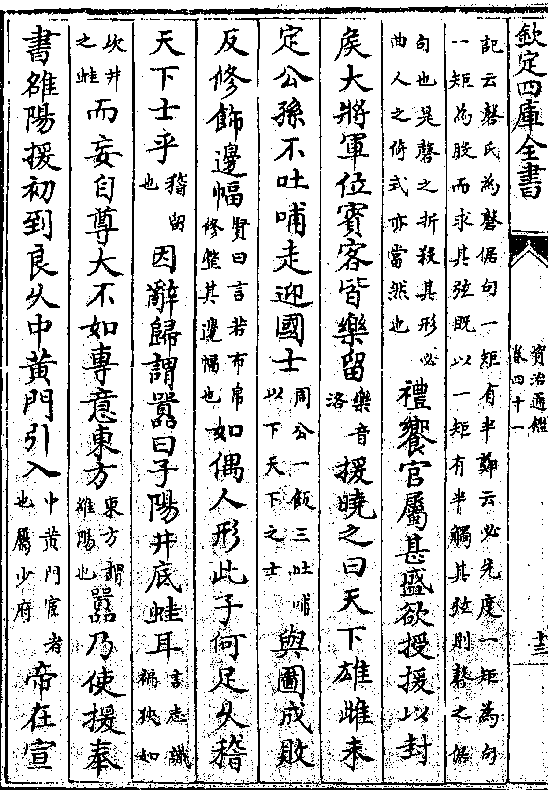 欽定四庫全書
資治通鑑
卷四十一
十三
記云磬氏為磬倨句一矩有半鄭云必先度一矩為句
一矩為股而求其弦既以一矩有半觸其弦則磬之倨
句也是磬之折殺其形必
曲人之倚式亦當然也
禮饗官屬甚盛欲授援以封
侯大將軍位賓客皆樂留
樂音
洛
援曉之曰天下雄雌未
定公孫不吐哺走迎國士
周公一飯三吐哺
以下天下之士
與圖成敗
反修飾邊幅
賢曰言若布帛
修整其邊幅也
如偶人形此子何足久稽
天下士乎
稽留
也
因辭歸謂囂曰子陽井底蛙耳
言志識
褊狹如
坎井
之蛙
而妄自尊大不如專意東方
東方謂
雒陽也
囂乃使援奉
書雒陽援初到良久中黄門引入
中黄門宦者
也屬少府
帝在宣